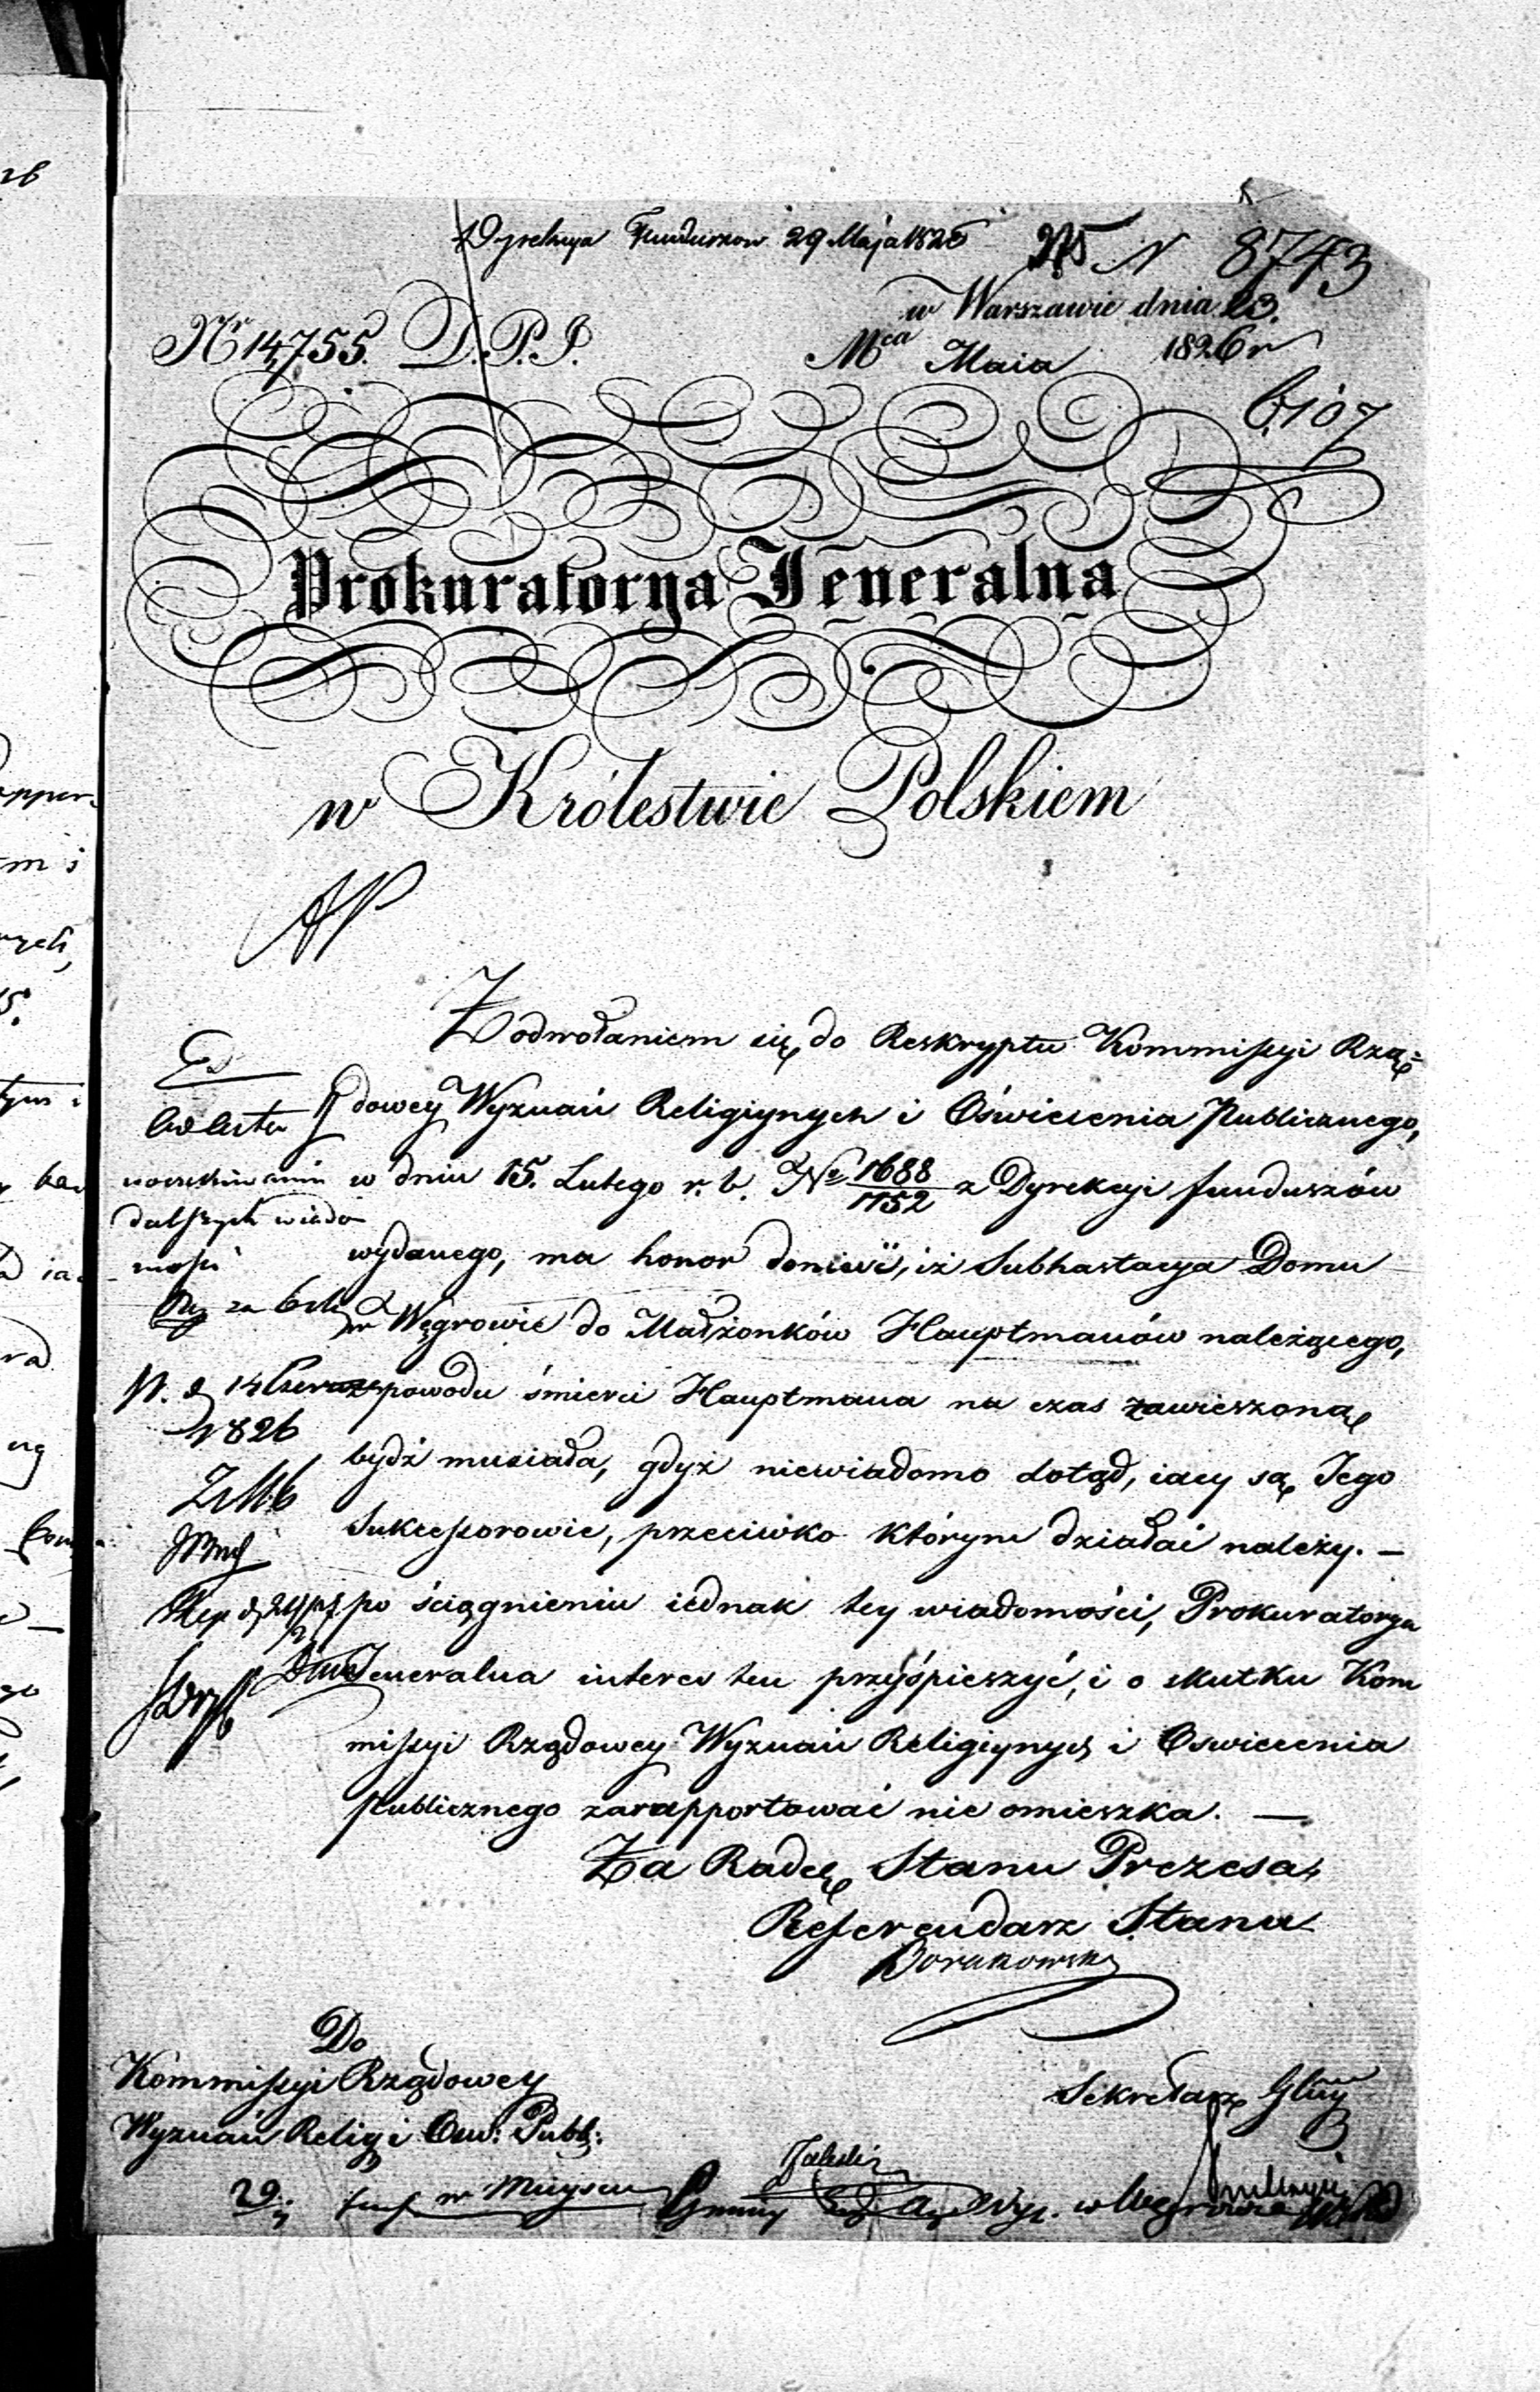 Dyrekcya Funduszow 29 Maja 1826
N 8743
w Warszawie dnia 23.
Nr 14,755. D.P.J.
Mca Maia 1826 r
6,107
Prokuratorya Jeneralna
w Królestwie Polskiem
Z odwołaniem się do Reskryptu Kommissyi Rzą=
dowey Wyznań Religiynych i Oświecenia Publicznego,
w dniu 15. Lutego r. b. No 1688/1752 z Dyrekcyi funduszów
wydanego, ma honor donieść, iż Subhastacya Domu
w Węgrowie do Małżonków Hauptmanów należącego,
z powodu śmierci Hauptmana na czas zawieszoną
bydź musiała, gdyż niewiadomo dotąd, iacy są Jego
Sukcessorowie, przeciwko którym działać należy. —
po ściągnieniu iednak tey wiadomości, Prokuratorya
Jeneralna interes ten przyśpieszyć, i o skutku Kom
missyi Rządowey Wyznań Religiynych i Oswiecenia
Publicznego zarapportować nie omieszka. —
Za Radcę Stanu Prezesa,
Referendarz Stanu
Do
Kommissyi Rządowey
Wyznań Relig i Ośw: Publ:
Sekretarz
ad acta
dalszych wiado
mości
za 6
N. d 14 Czerw
1826
29.
w Mieyscu
w Węgrowie